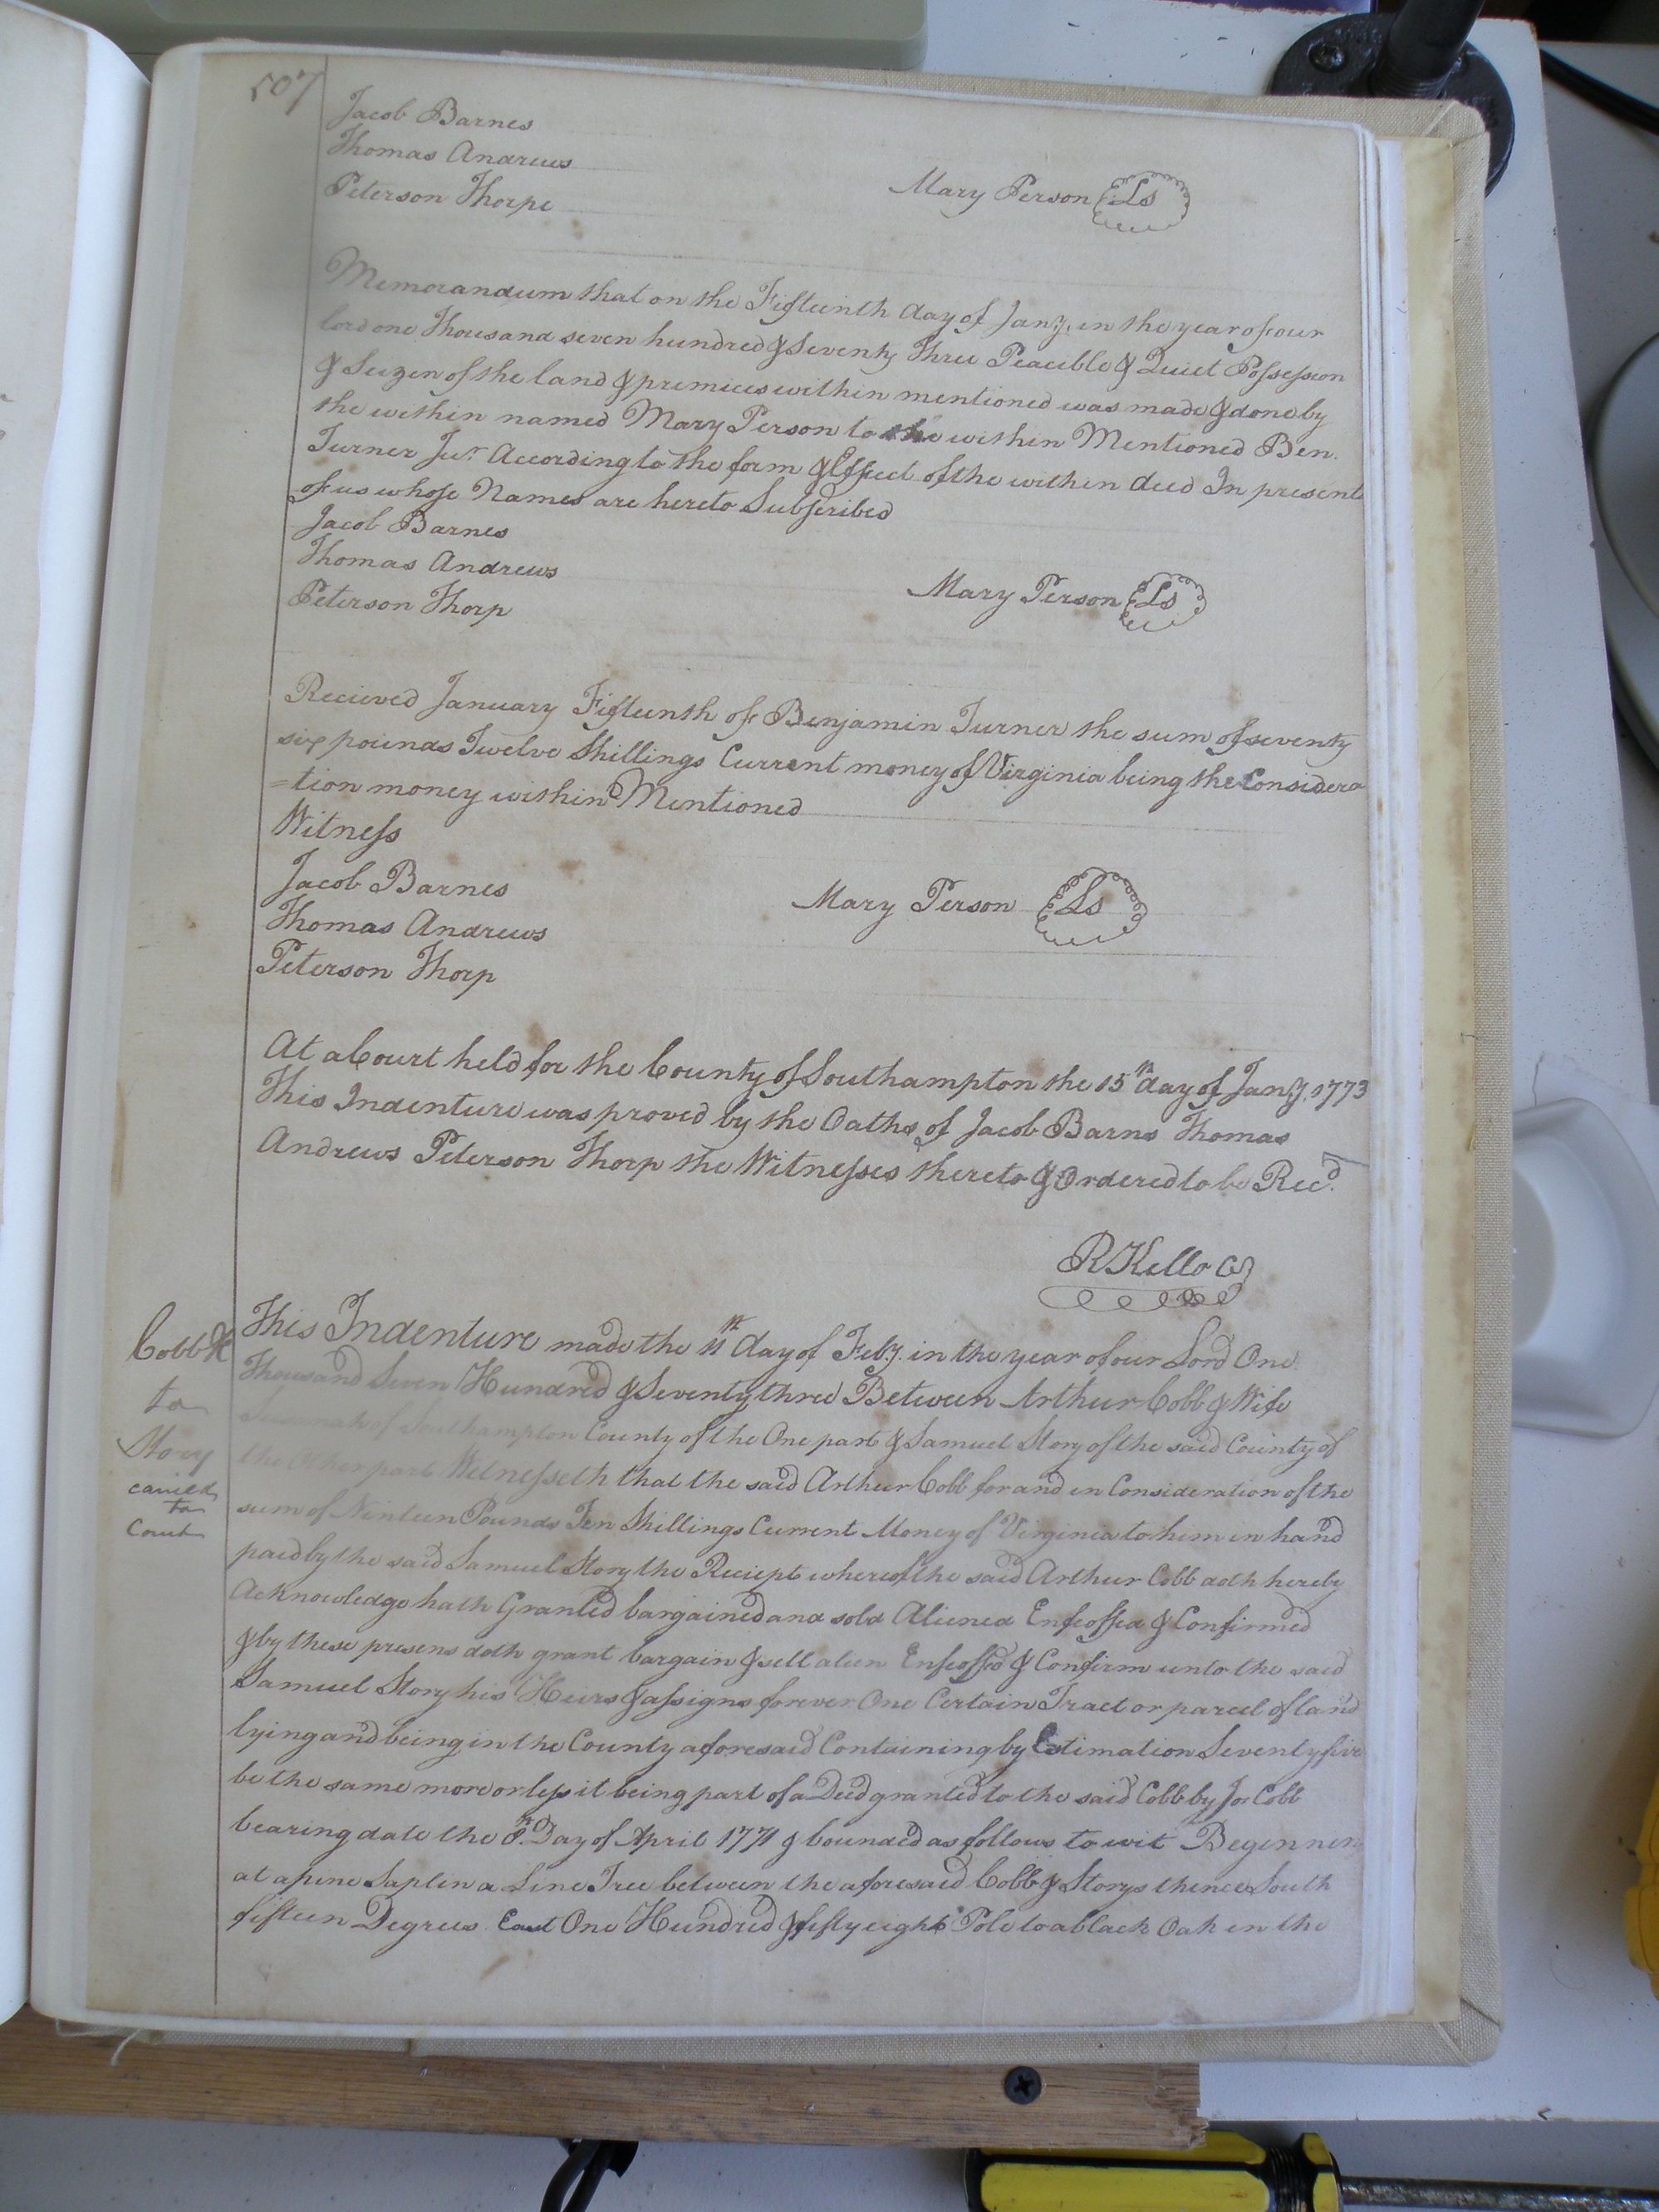 507
Jacob Barnes
Thomas Andrews
Peterson Thorpe
Mary Person Ls
Memorandum that on the Fifteenth day of Jany. in the year of our
lord one Thousand seven hundred & Seventy Three Peacible & Quiet Possession
& Seizen of the land & premices within mentioned was made & done by
the within named Mary Person to the within Mentioned Ben.
Turner Jur. According to the form & Effect of the within deed In presents
of us whose Names are hereto Subscribed
Jacob Barnes
Thomas Andrews
Peterson Thorp
Mary Person Ls
Recieved January Fifteenth of Benjamin Turner the sum of seventy
six pounds Twelve Shillings Current money of Virginia being the Considera
=tion money within Mentioned
Witness
Jacob Barnes
Thomas Andrews
Peterson Thorp
Mary Person Ls
At a Court held for the County of Southampton the 15th day of Jany. 1773
This Indenture was proved by the Oaths of Jacob Barns Thomas
Andrews Peterson Thorp the Witnesses thereto & Ordered to be Recd.
R Kello
Cobb
to
Story
to
Court
This Indenture made the 11th day of Feby. in the year of our Lord One
Thousand Seven Hundred & Seventy three Between Arthur Cobb & Wife
of Southampton County of the One part & Samuel Story of the said County of
the Other part Witnesseth that the said Arthur Cobb for and in Consideration of the
sum of Ninteen Pounds Ten Shillings Current Money of Virginia to him in hand
paid by the said Samuel Story the Reciept whereof the said Arthur Cobb doth hereby
Acknowledge hath Granted bargained and sold Aliened Enfeoffed & Confirmed
& by these presens doth grant bargain & sell alien Enfeoffed & Confirm unto the said
Samuel Story his Heirs & assigns forever One Certain Tract or parcel of land
lying and being in the County aforesaid Containing by Estimation Seventy five
be the same more or less it being part of a Deed granted to the said Cobb by Jos Cobb
bearing date the Day of April 1771 & bounded as follows to wit Beginnen
at a pine Saplin a Line Tree between the aforesaid Cobb & Storys thence South
fifteen Degrees East One Hundred & fifty eight Pole to a black Oak in the